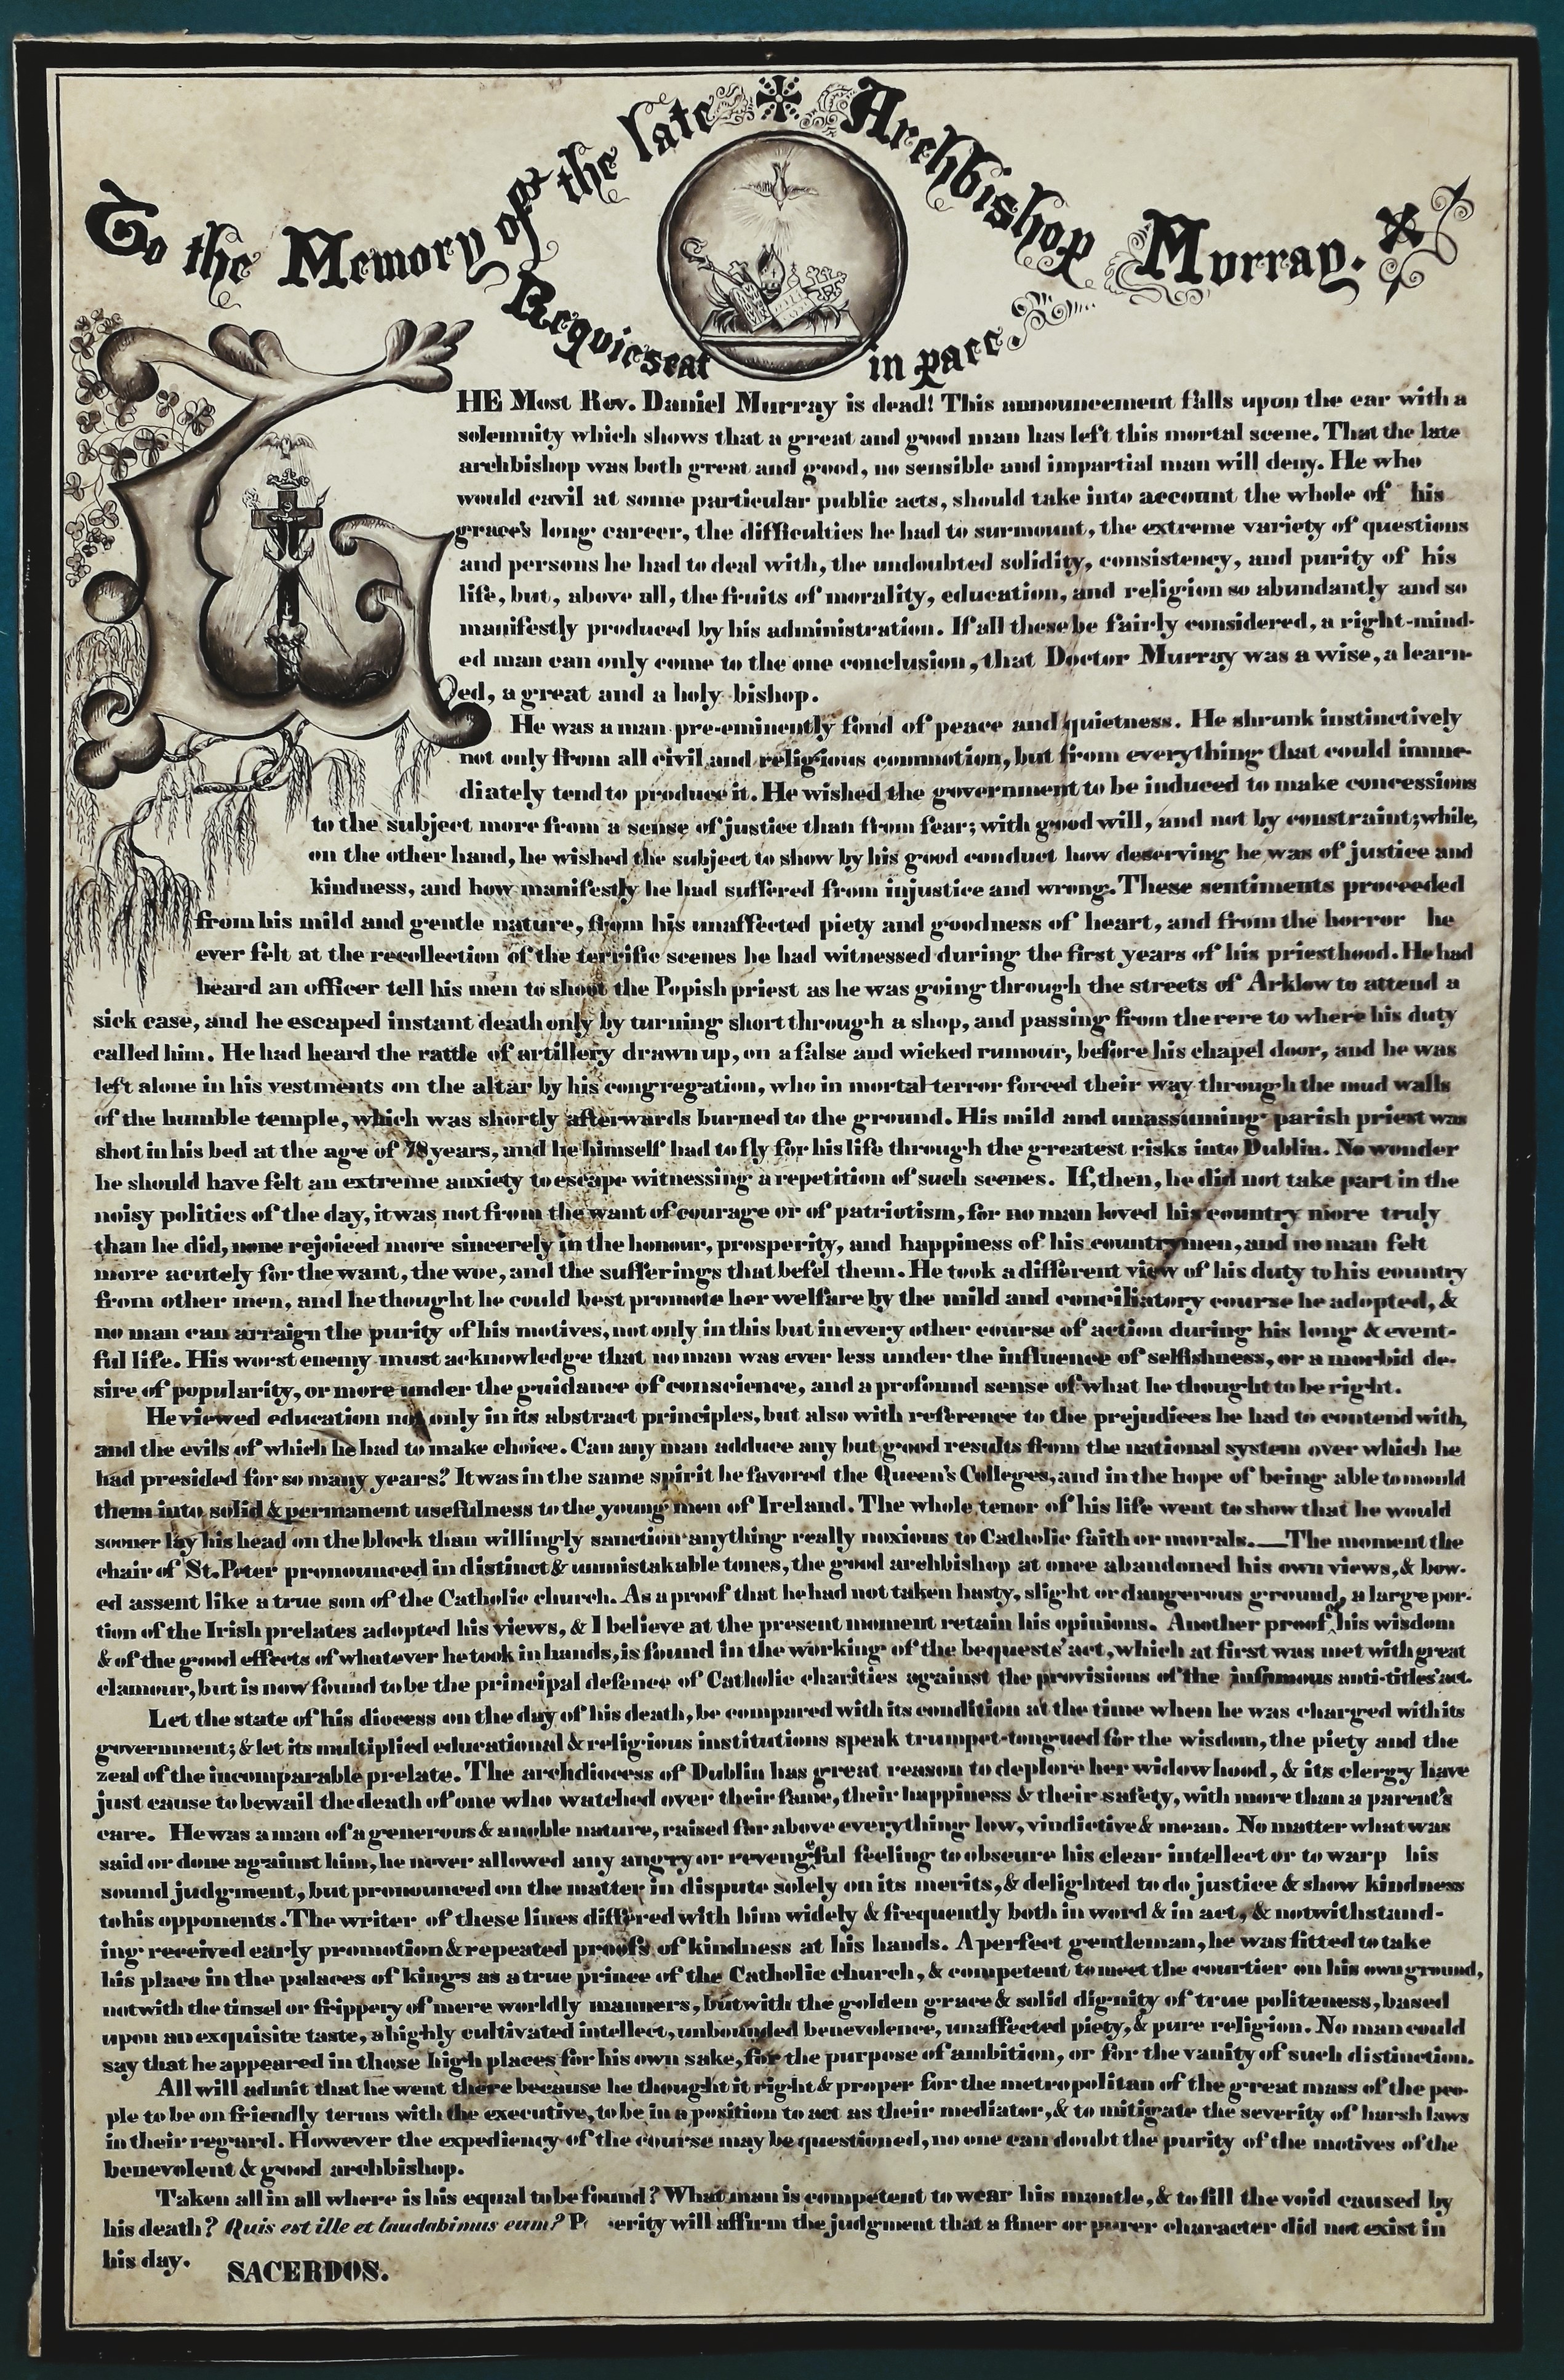 To the Memory of the late Archbishop Murray.
Requiescat in pace.
THE Most Rev. Daniel Murray is dead! This announcement falls upon the ear with a
solemnity which shows that a great and good man has left this mortal scene. That the late
archbishop was both great and good, no sensible and impartial man will deny. He who
would cavil at some particular public acts, should take into account the whole of his
grace's long career, the difficulties he had to surmount, the extreme variety of questions
and persons he had to deal with, the undoubted solidity, consistency, and purity of his
life, but, above all, the fruits of morality, education, and religion so abundantly and so
manifestly produced by his administration. If all these be fairly considered, a right-mind-
ed man can only come to the one conclusion, that Doctor Murray was a wise, a learn-
ed, a great and a holy bishop.
He was a man pre-eminently fond of peace and quietness. He shrunk instinctively
not only from all civil and religious commotion, but from everything that could imme-
diately tend to produce it. He wished the government to be induced to make concessions
to the subject more from a sense of justice than from fear; with good will, and not by constraint; while,
on the other hand, he wished the subject to show by his good conduct how deserving he was of justice and
kindness, and how manifestly he had suffered from injustice and wrong. These sentiments proceeded
from his mild and gentle nature, from his unaffected piety and goodness of heart, and from the horror he
ever felt at the recollection of the terrific scenes he had witnessed during the first years of his priesthood. He had
heard an officer tell his men to shoot the Popish priest as he was going through the streets of Arklow to attend a
sick case, and he escaped instant death only by turning short through a shop, and passing from the rere to where his duty
called him. He had heard the rattle of artillery drawn up, on a false and wicked rumour, before his chapel door, and he was
left alone in his vestments on the altar by his congregation, who in mortal terror forced their way through the mud walls
of the humble temple, which was shortly afterwards burned to the ground. His mild and unassuming parish priest was
shot in his bed at the age of 78 years, and he himself had to fly for his life through the greatest risks into Dublin. No wonder
he should have felt an extreme anxiety to escape witnessing a repetition of such scenes. If, then, he did not take part in the
noisy politics of the day, it was not from the want of courage or of patriotism, for no man loved his country more truly
than he did, none rejoiced more sincerely in the honour, prosperity, and happiness of his countrymen, and no man felt
more acutely for the want, the woe, and the sufferings that befel them. He took a different view of his duty to his country
from other men, and he thought he could best promote her welfare by the mild and conciliatory course he adopted, &
no man can arraign the purity of his motives, not only in this but in every other course of action during his long & event-
ful life. His worst enemy must acknowledge that no man was ever less under the influence of selfishness, or a morbid de-
sire of popularity, or more under the guidance of conscience, and a profound sense of what he thought to be right.
He viewed education not only in its abstract principles, but also with reference to the prejudices he had to contend with,
and the evils of which he had to make choice. Can any man adduce any but good results from the national system over which he
had presided for so many years? It was in the same spirit he favored the Queen's Colleges, and in the hope of being able to mould
them into solid & permanent usefulness to the young men of Ireland. The whole tenor of his life went to show that he would
sooner lay his head on the block than willingly sanction anything really noxious to Catholic faith or morals.—The moment the
chair of St. Peter pronounced in distinct & unmistakable tones, the good archbishop at once abandoned his own views, & bow-
ed assent like a true son of the Catholic church. As a proof that he had not taken hasty, slight or dangerous ground, a large por-
tion of the Irish prelates adopted his views, & I believe at the present moment retain his opinions. Another proof of his wisdom
& of the good effects of whatever he took in hands, is found in the working of the bequests' act, which at first was met with great
clamour, but is now found to be the principal defence of Catholic charities against the provisions of the infamous anti-titles' act.
Let the state of his diocess on the day of his death, be compared with its condition at the time when he was charged with its
government; & let its multiplied educational & religious institutions speak trumpet-tongued for the wisdom, the piety and the
zeal of the incomparable prelate. The archdiocess of Dublin has great reason to deplore her widowhood, & its clergy have
just cause to bewail the death of one who watched over their fame, their happiness & their safety, with more than a parent's
care. He was a man of a generous & a noble nature, raised far above everything low, vindictive & mean. No matter what was
said or done against him, he never allowed any angry or revengeful feeling to obscure his clear intellect or to warp his
sound judgment, but pronounced on the matter in dispute solely on its merits, & delighted to do justice & show kindness
to his opponents. The writer of these lines differed with him widely & frequently both in word & in act, & notwithstand-
ing received early promotion & repeated proofs of kindness at his hands. A perfect gentleman, he was fitted to take
his place in the palaces of kings as a true prince of the Catholic church, & competent to meet the courtier on his own ground,
not with the tinsel or frippery of mere worldly manners, but with the golden grace & solid dignity of true politeness, based
upon an exquisite taste, a highly cultivated intellect, unbounded benevolence, unaffected piety, & pure religion. No man could
say that he appeared in those high places for his own sake, for the purpose of ambition, or for the vanity of such distinction.
All will admit that he went there because he thought it right & proper for the metropolitan of the great mass of the peo-
ple to be on friendly terms with the executive, to be in a position to act as their mediator, & to mitigate the severity of harsh laws
in their regard. However the expediency of the course may be questioned, no one can doubt the purity of the motives of the
benevolent & good archbishop.
Taken all in all where is his equal to be found? What man is competent to wear his mantle, & to fill the void caused by
his death? Quis est ille et laudabimus eum? P erity will affirm the judgment that a finer or purer character did not exist in
his day.
SACERDOS.